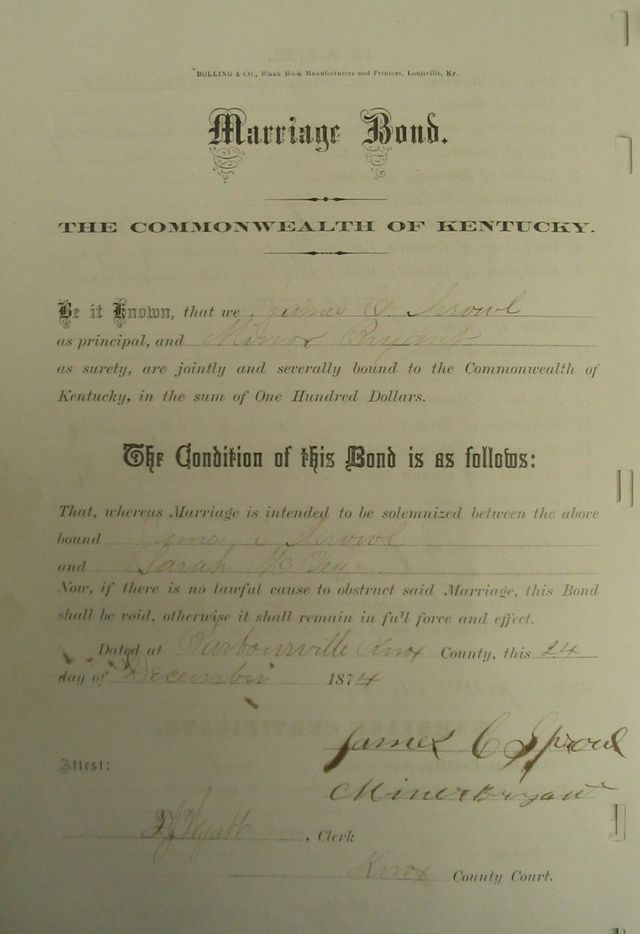 BOLLING & CO., Blank Book Manufacturers and Printers, Louisville, Ky.
Marriage Bond.
THE COMMONWEALTH OF KENTUCKY.
Be it Known, that we, James C.
as principal, and Minor Bryant
as surety, are jointly and severally bound to the Commonwealth of
Kentucky, in the sum of One Hundred Dollars.
The Condition of this Bond is as follows:
That, whereas Marriage is intended to be solemnized between the above
bound James C
and Sarah
Now, if there is no lawful cause to obstruct said Marriage, this Bond
shall be void, otherwise it shall remain in full force and effect.
Dated at Barbourville Knox County, this 24
day of December 1874
James C Sproul
Miner Bryant
Attest:
Wyatt, Clerk
Knox County Court.